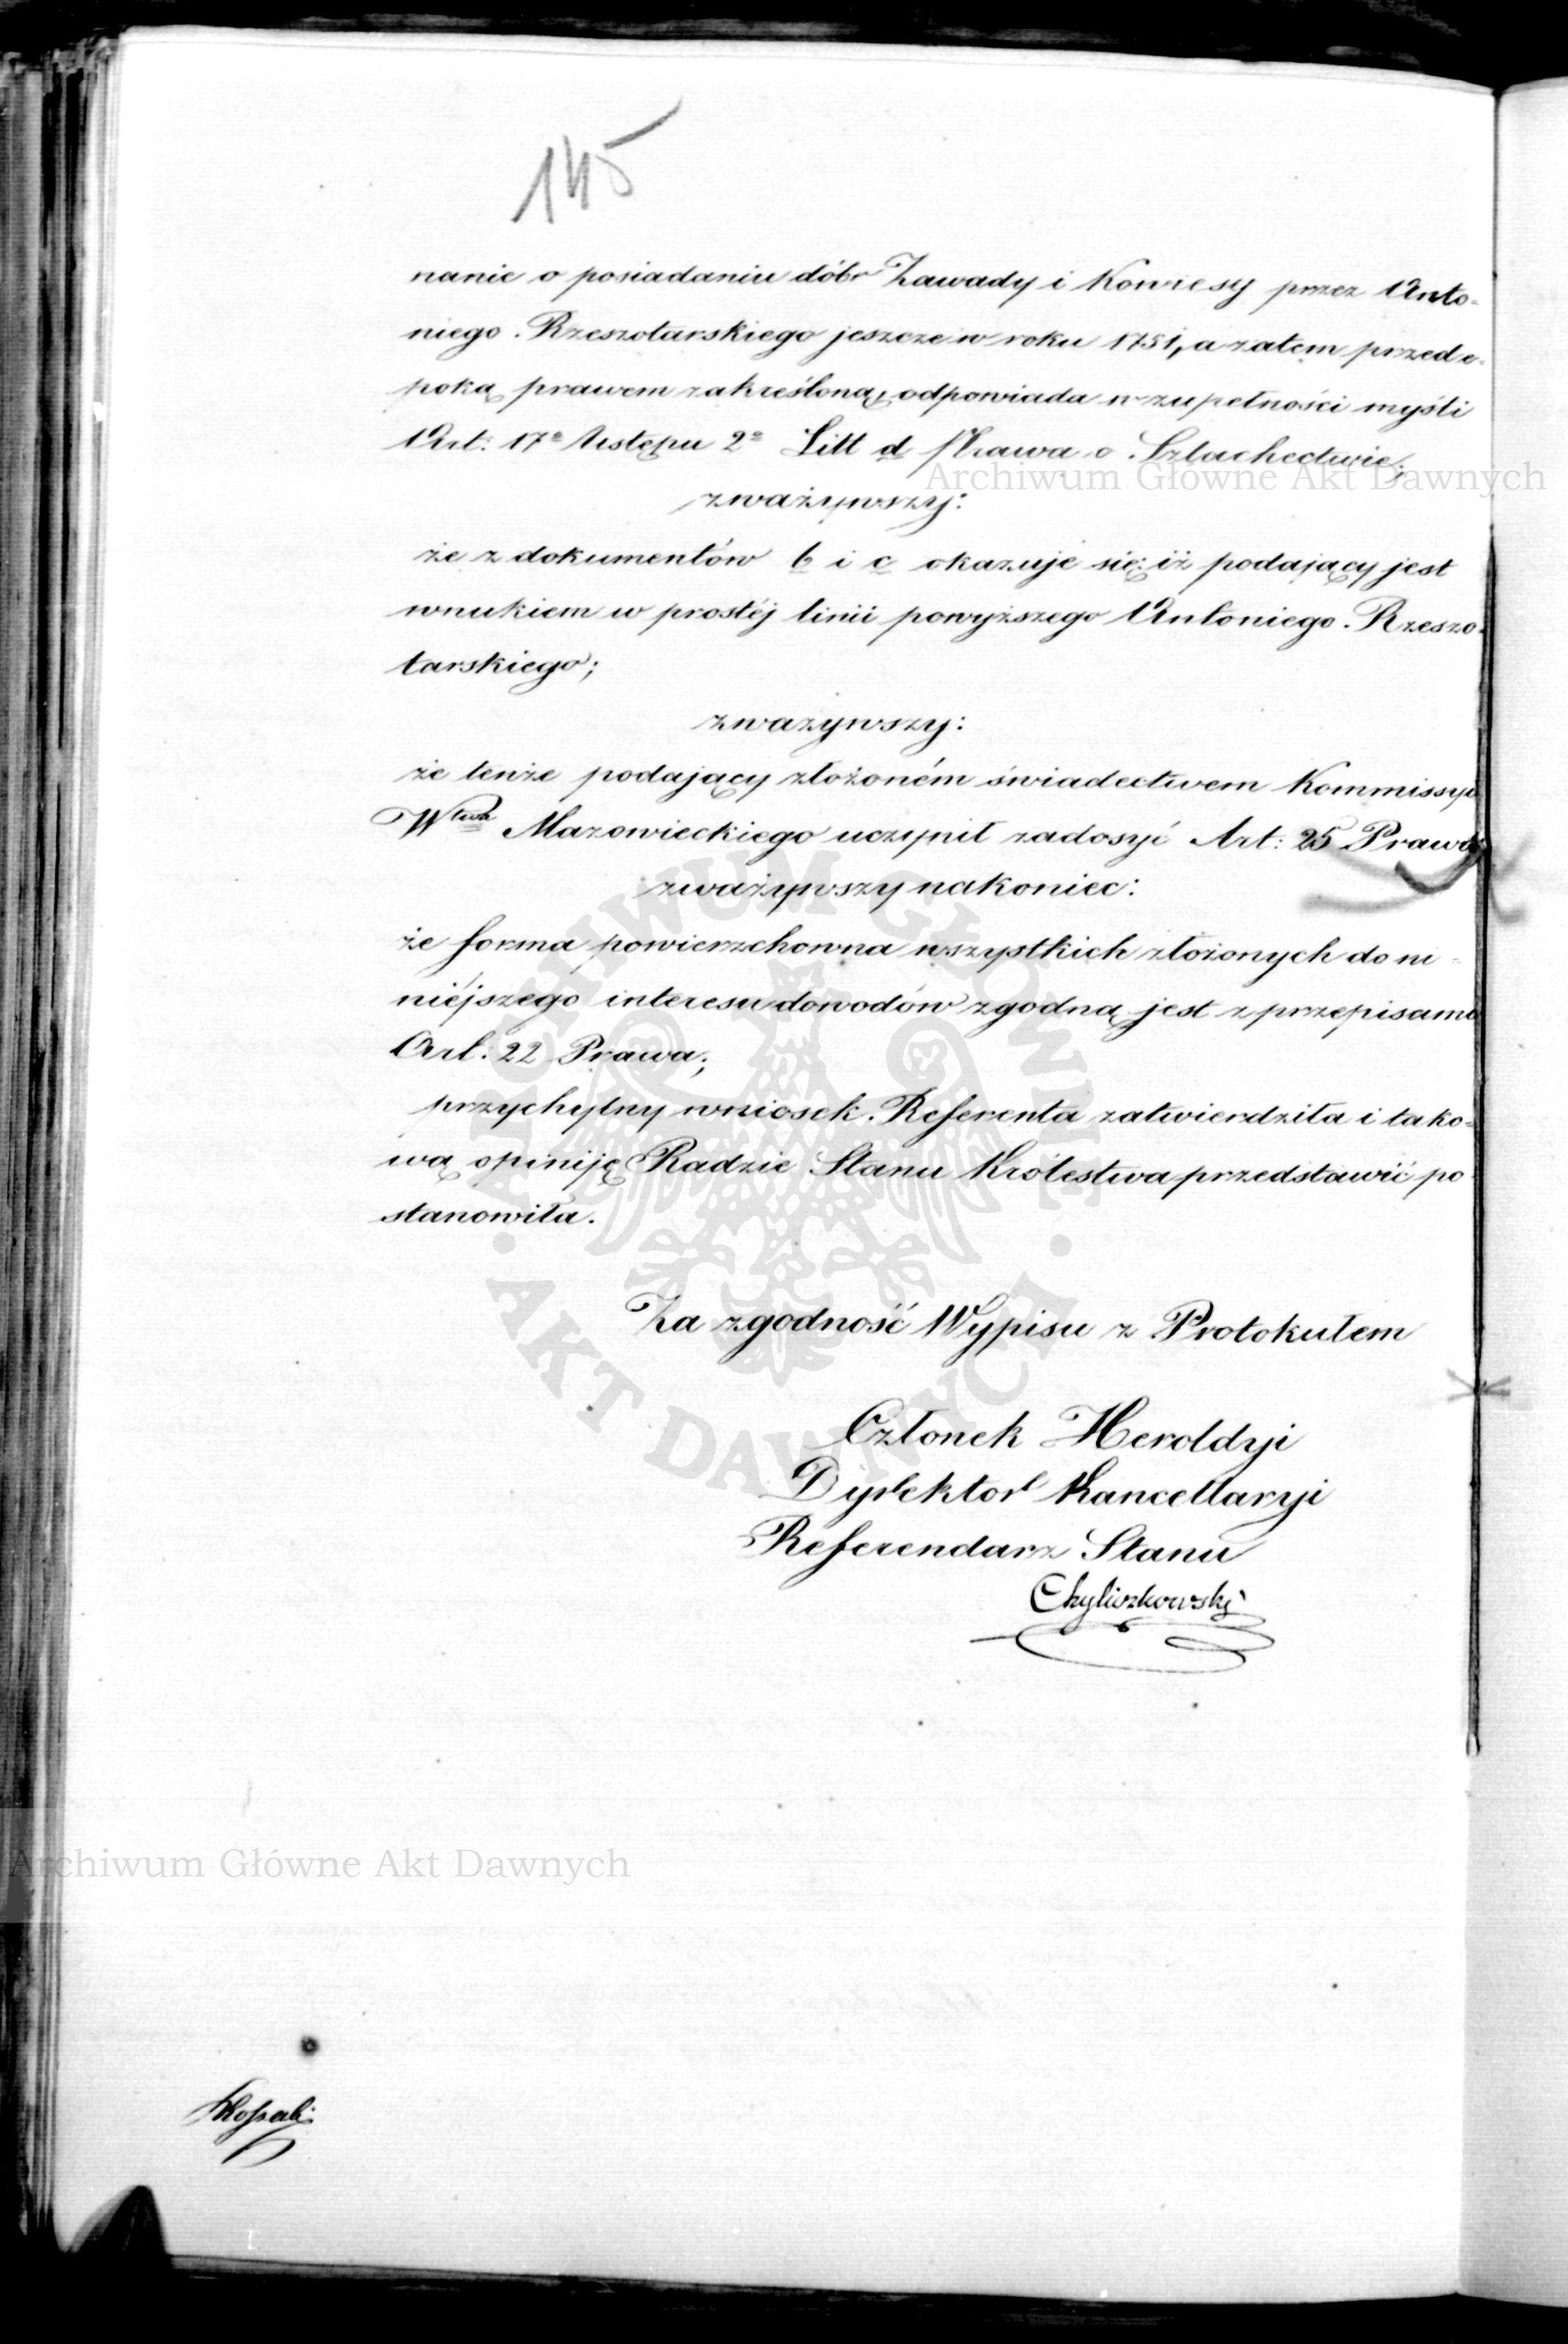 145
nanie o posiadaniu dóbr Zawady i Kowiesy przez Anto-
niego Rzeszotarskiego jeszcze w roku 1751, a zatem przed e-
poką prawem zakreśloną, odpowiada w zupełności myśli
Art: 17º Ustępu 2º Litt d Prawa o Szlachectwie;
Archiwum Główne Akt Dawnych
zważywszy:
że z dokumentów b i c okazuje się iż podający jest
wnukiem w prostéj linii powyższego Antoniego Rzeszo-
tarskiego;
zważywszy:
że tenże podający złożoném świadectwem Kommissyi
Wtwa Mazowieckiego uczynił zadosyć Art: 25 Prawa;
zważywszy nakoniec:
że forma powierzchowna wszystkich złożonych do ni-
niéjszego interesu dowodów zgodną jest z przepisami
Art: 22 Prawa;
przychylny wniosek Referenta zatwierdziła i tako-
wą opiniję Radzie Stanu Królestwa przedstawić po-
stanowiła.
ARCHIWUM GŁÓWNE • AKT DAWNYCH •
Za zgodność Wypisu z Protokułem
Członek Heroldyi
Dyrektor Kancellaryi
Referendarz Stanu
Chyliczkowski
Archiwum Główne Akt Dawnych